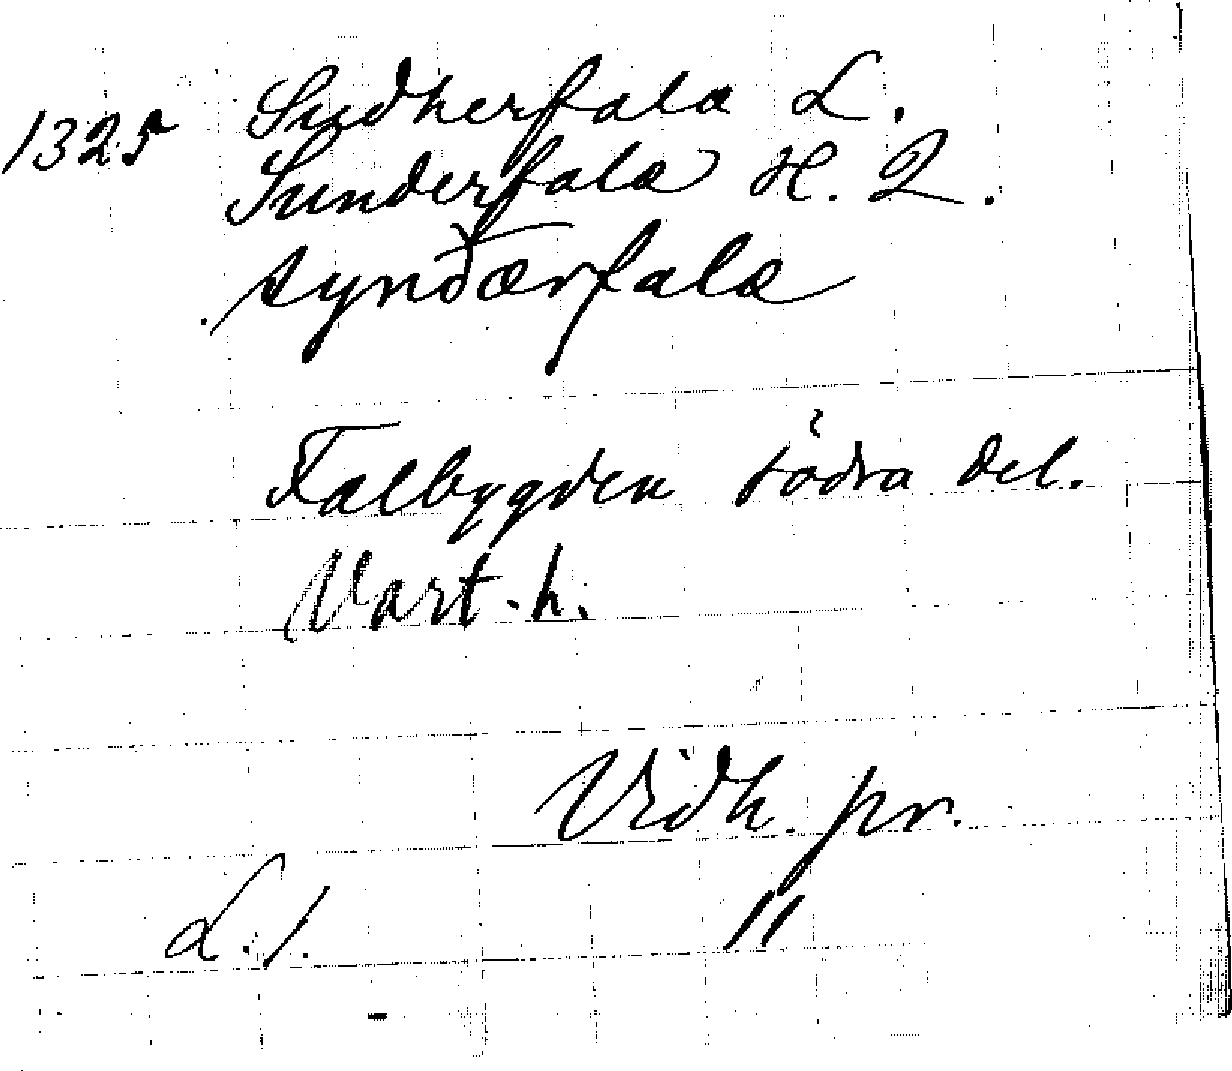 1325 Sudherfala L.
Sunderfala H. 2.
synðærfala
Falbygden södra del.
Vart. h.
Vidh. pr.
L. 1. 11